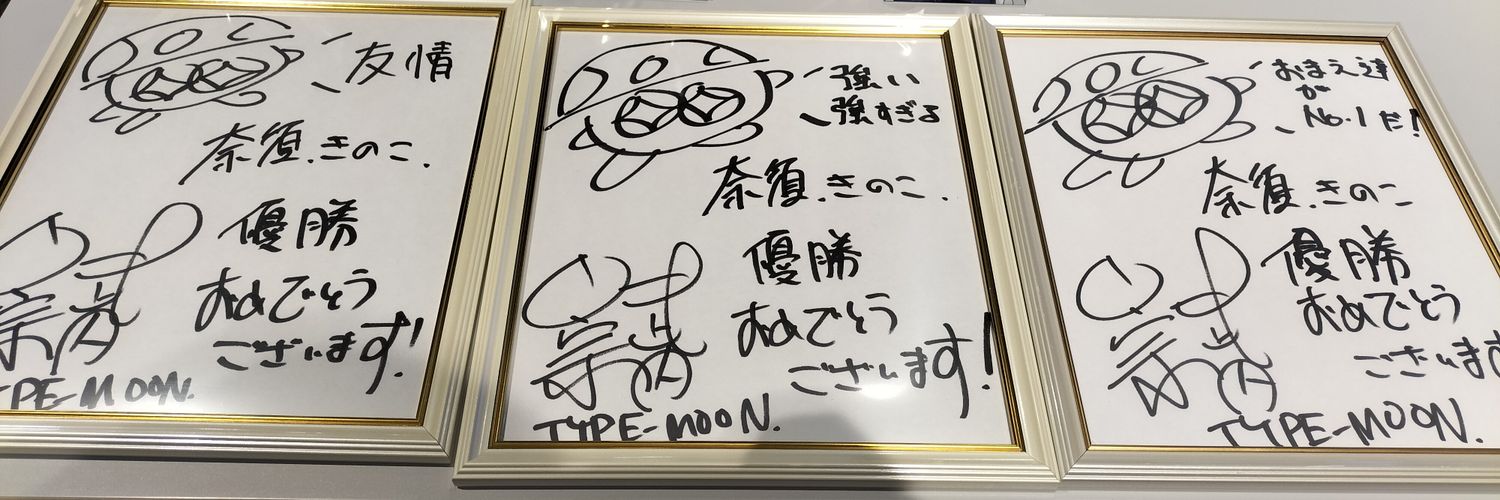 友情
奈須きのこ.
優勝
おめでとう
ございます!
TYPE-MOON.
強い
強すぎる
奈須きのこ.
優勝
おめでとう
ございます!
TYPE-MOON.
おまえ達
が
No.1だ!
奈須きのこ
優勝
おめでとう
ございます
TYPE-MOON.